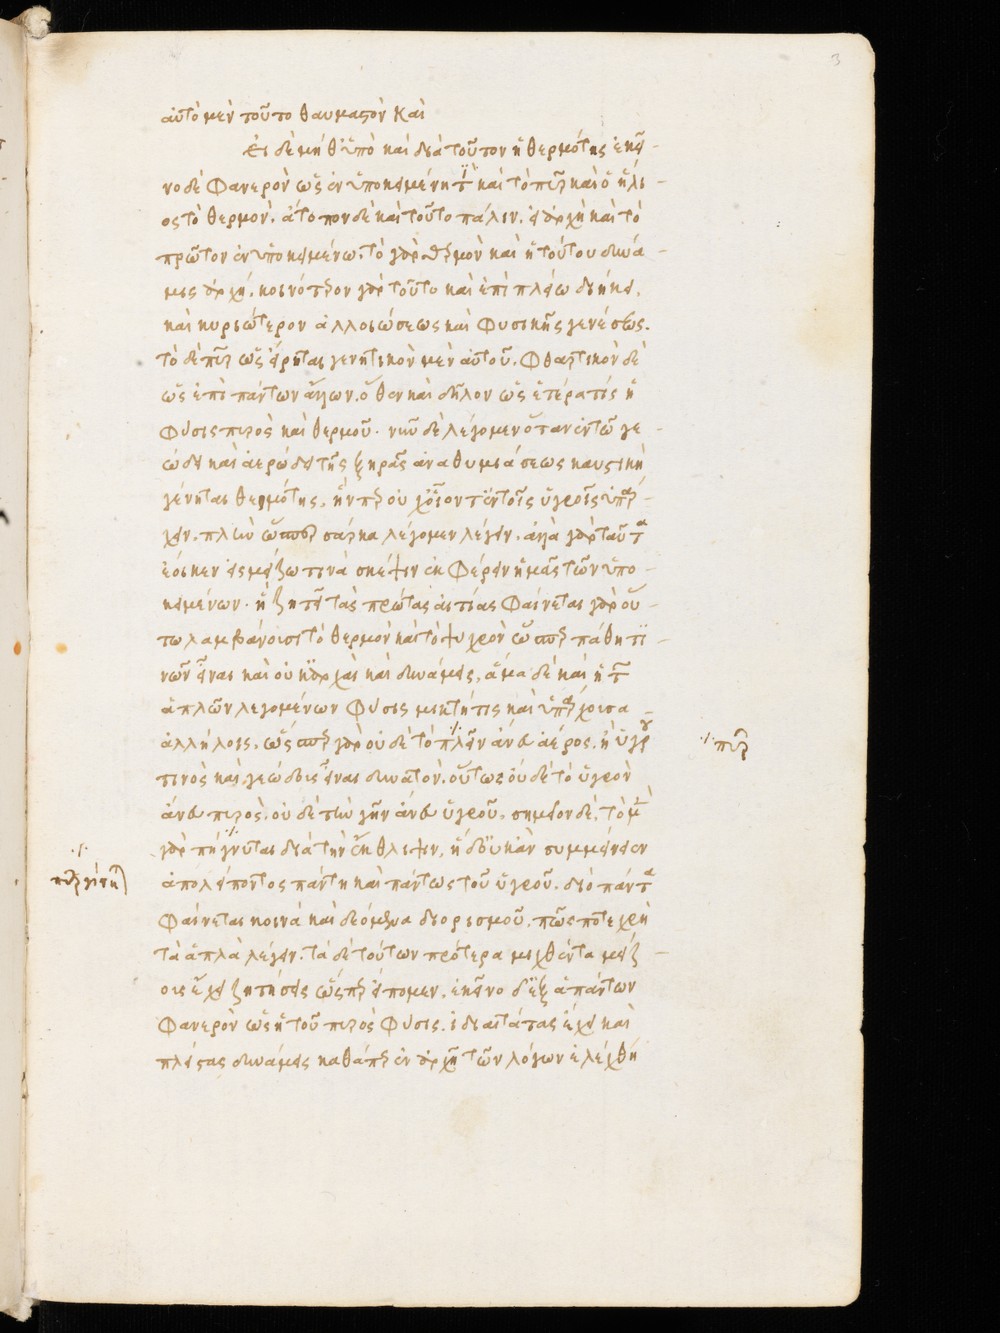 3
αὐτὸ μὲν τοῦτο θαυμαστὸν καὶ
Εἰ δὲ μήθ' ὑπὸ καὶ διὰ τοῦτον ἡ θερμότης ἐκεῖ -
νο δὲ φανερὸν ὡς ἐν ὑποκειμένῳ τινὶ καὶ τὸ πῦρ καὶ ὁ ἥλι -
ος τὸ θερμὸν. ἄτοπον δὲ καὶ τοῦτο πάλιν. εἰ ἀρχὴ καὶ τὸ
πρῶτον ἐν ὑποκειμένω. τὸ γὰρ θερμὸν καὶ ἡ τούτου δυνά -
μις ἀρχή. κοινότερον γὰρ τοῦτο καὶ ἐπὶ πλείω διήκει.
καὶ κυριώτερον ἀλλοιώσεως καὶ φυσικῆς γενέσεως.
τὸ δὲ πῦρ ὡς εἴρηται γενητικὸν μὲν αὑτοῦ. φθαρτικὸν δὲ
ὡς ἐπὶ πάντων ἄλλων. ὅθεν καὶ δῆλον ὡς ἑτέρα τίς ἡ
φύσις πυρὸς καὶ θερμοῦ. νῦν δὲ λέγομεν ὅταν ἐν τῷ γε -
ώδει καὶ ἀερώδει τῆς ξηρᾶς ἀναθυμιάσεως καυστικὴ
γένηται θερμότης. ἥνπερ οὐχ οἷόν τ' ἐν τοῖς ὑγροῖς ὑπάρ -
χειν. πλὴν ὥσπερ σάρκα λέγομεν λέγειν. ἀλλὰ γὰρ ταῦτα
ἔοικεν εἰς μείζω τινὰ σκέψιν ἐκφέρειν ἡμᾶς τῶν ὑπο -
κειμένων. ἢ ζητεῖ τὰς πρώτας αἰτίας φαίνεται γὰρ οὕ -
τω λαμβάνουσι τὸ θερμὸν καὶ τὸ ψυχρὸν ὥσπερ πάθη τι -
νῶν εἶναι καὶ οὐκ ἀρχὰς καὶ δυνάμεις. ἅμα δὲ καὶ ἡ τῶν
ἁπλῶν λεγομένων φύσις μικτή τις καὶ ὑπάρχουσα -
ἀλλήλοις. ὥσπερ γὰρ οὐδὲ τὸ πλεῖν ἄνευ ἀέρος. ἢ ὑγροῦ
τινὸς καὶ γεώδους εἶναι δυνατὸν. οὕτως οὐδὲ τὸ ὑγρὸν
·/· πῦρ
ἄνευ πυρὸς. οὐδὲ τὴν γῆν ἄνευ ὑγροῦ. σημεῖον δὲ. τὸ μὲν
γὰρ πήγνυται διὰ τὴν ἔκθλιψιν, ἡ δ' οὐκ ἂν συμμένειεν
ἀπολείποντος πάντη καὶ πάντως τοῦ ὑγροῦ. διὸ πάντα
φαίνεται κοινὰ καὶ δεόμενα διορισμοῦ. πῶς ποτὲ χρὴ
τὰ ἁπλὰ λέγειν. τὰ δὲ τούτων πρότερα μιχθέντα μείζ -
ους ἔχει ζητήσεις ὥσπερ εἴπομεν. ἐκεῖνο δ' ἐξ ἁπάντων
φανερὸν ὡς ἡ τοῦ πυρὸς φύσις. ἰδιαιτάτας ἔχει καὶ
πλείστας δυνάμεις καθάπερ ἐν ἀρχῇ τῶν λόγων ἐλέχθη